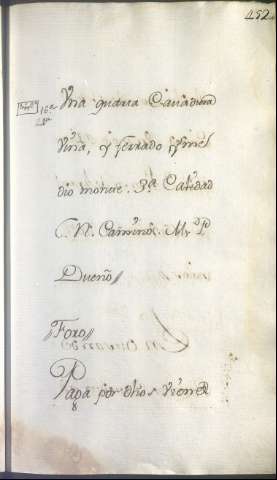 452
16ª Una quarta Cavadura
Viña, y ferrado y mel
dio monte. 3ª Calidad
C. N. Camino. M. y P.
Dueño
Foro
Paga por dhos Vienes